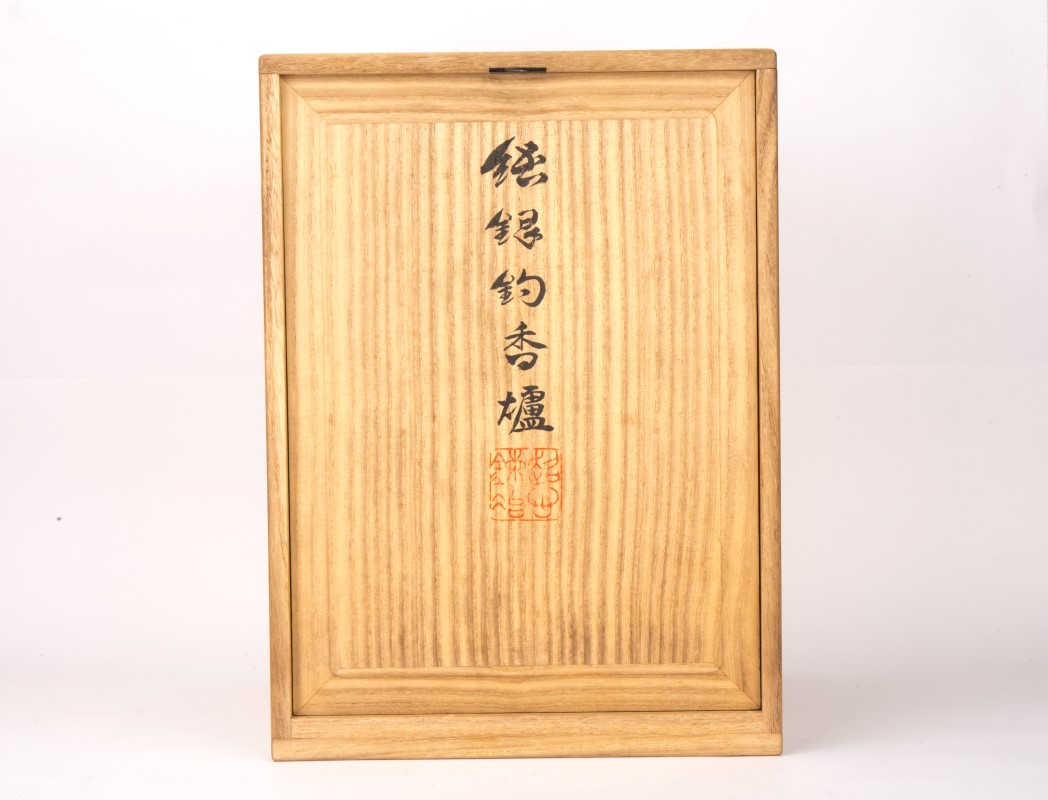 純銀釣香爐